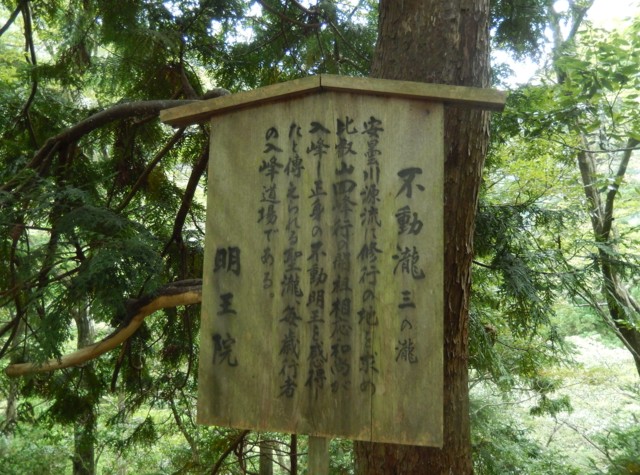 不動瀧 三の瀧
安曇川源流に修行の地を求め
比叡山回峰行の開祖相応和尚が
入峰し正身の不動明王を感得
たと傳えられる聖瀧、毎歳行者
の入峰道場である。
明王院